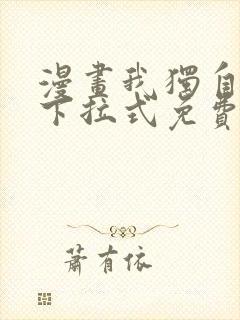 漫畫我獨自
下拉式免費
蕭有依